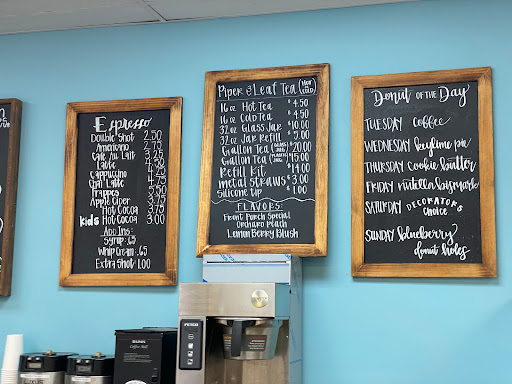 Espresso
Double Shot 2.50
Americano 2.75
Cafe Au Lait
Latte
Cappuccino
Chai Latte
Frappes
Apple Cider
Hot Cocoa 3.75
Kids Hot Cocoa 3.00
Add Ins:
Syrup .65
Whip Cream .65
Extra Shot 1.00
Piper & Leaf Tea (Hot/Cold)
16 oz Hot Tea $4.50
16 oz Cold Tea $4.50
32oz Glass Jar $10.00
32oz Jar Refill $5.00
Gallon Tea $20.00
Gallon Tea $15.00
Refill Kit $14.00
metal straws $3.00
silicone tip $1.00
FLAVORS:
Front Porch Special
Orchard Peach
Lemon Berry Blush
Donut OF THE Day
TUESDAY coffee
WEDNESDAY keylime pie
THURSDAY cookie butter
FRIDAY nutella bismark
SATURDAY DECORATORS
CHOICE
SUNDAY blueberry
donut holes
FETCO
BUNN